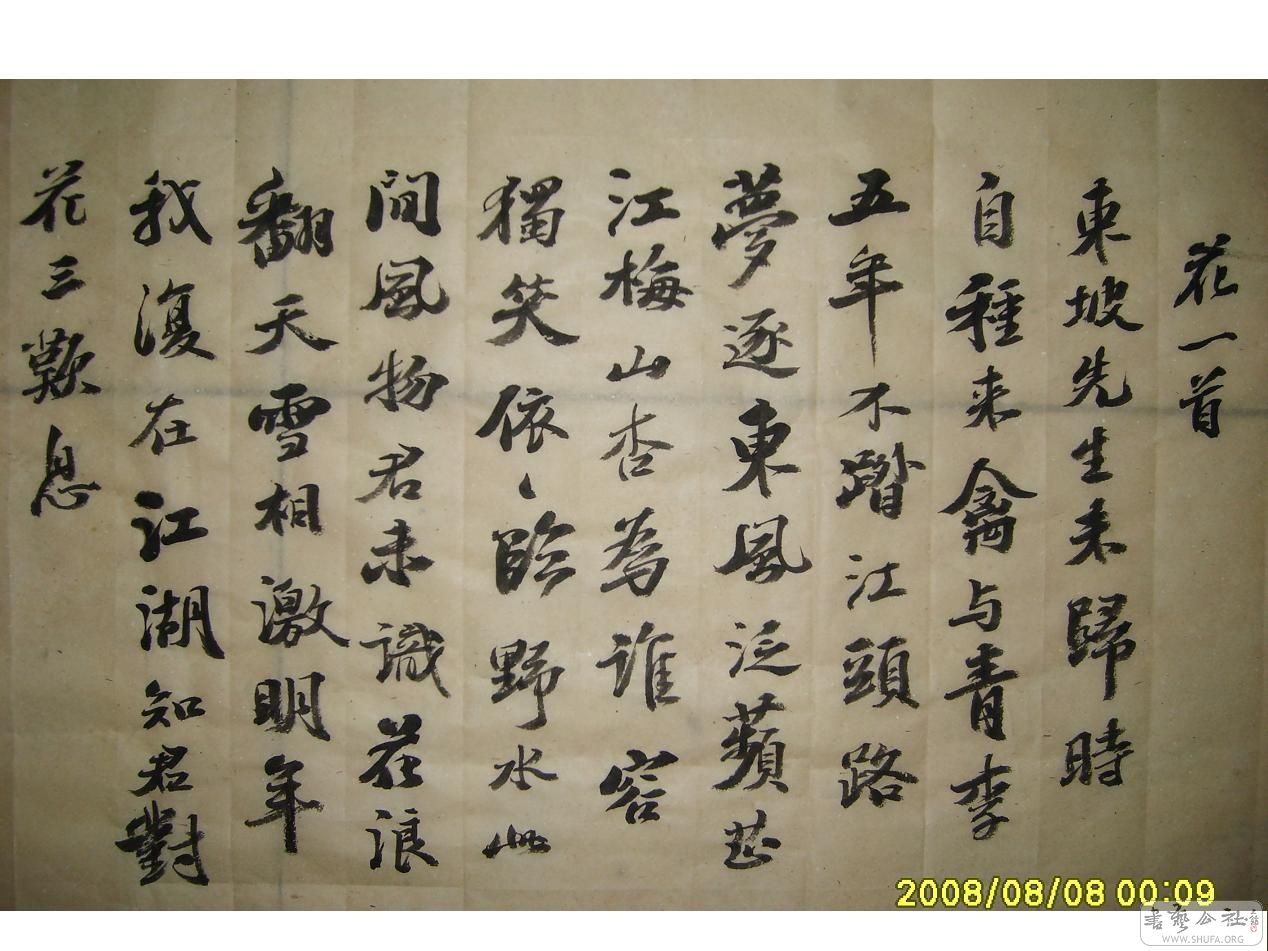 花一首
東坡先生未歸時
自種来禽与青李
五年不踏江頭路
夢逐東風泛蘋芷
江梅山杏為誰容
獨笑依〻臨野水此
間風物君未識花浪
翻天雪相激明年
我復在江湖知君對
花三歎息
2008/08/08 00:09
書藝公社
WWW.SHUFA.ORG